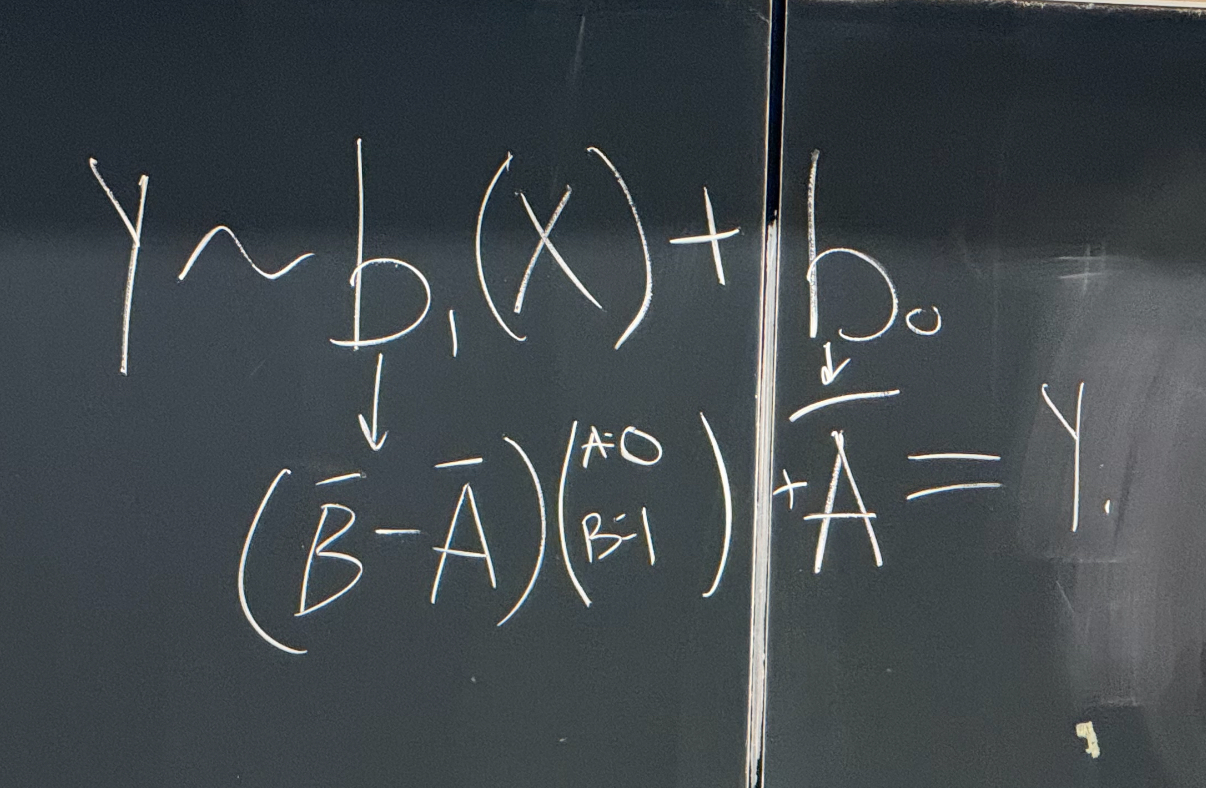 Y ~ b₁(X) + b₀
↓ ↓
(B̄ - Ā)(A=0 B=1) + Ā = Y.